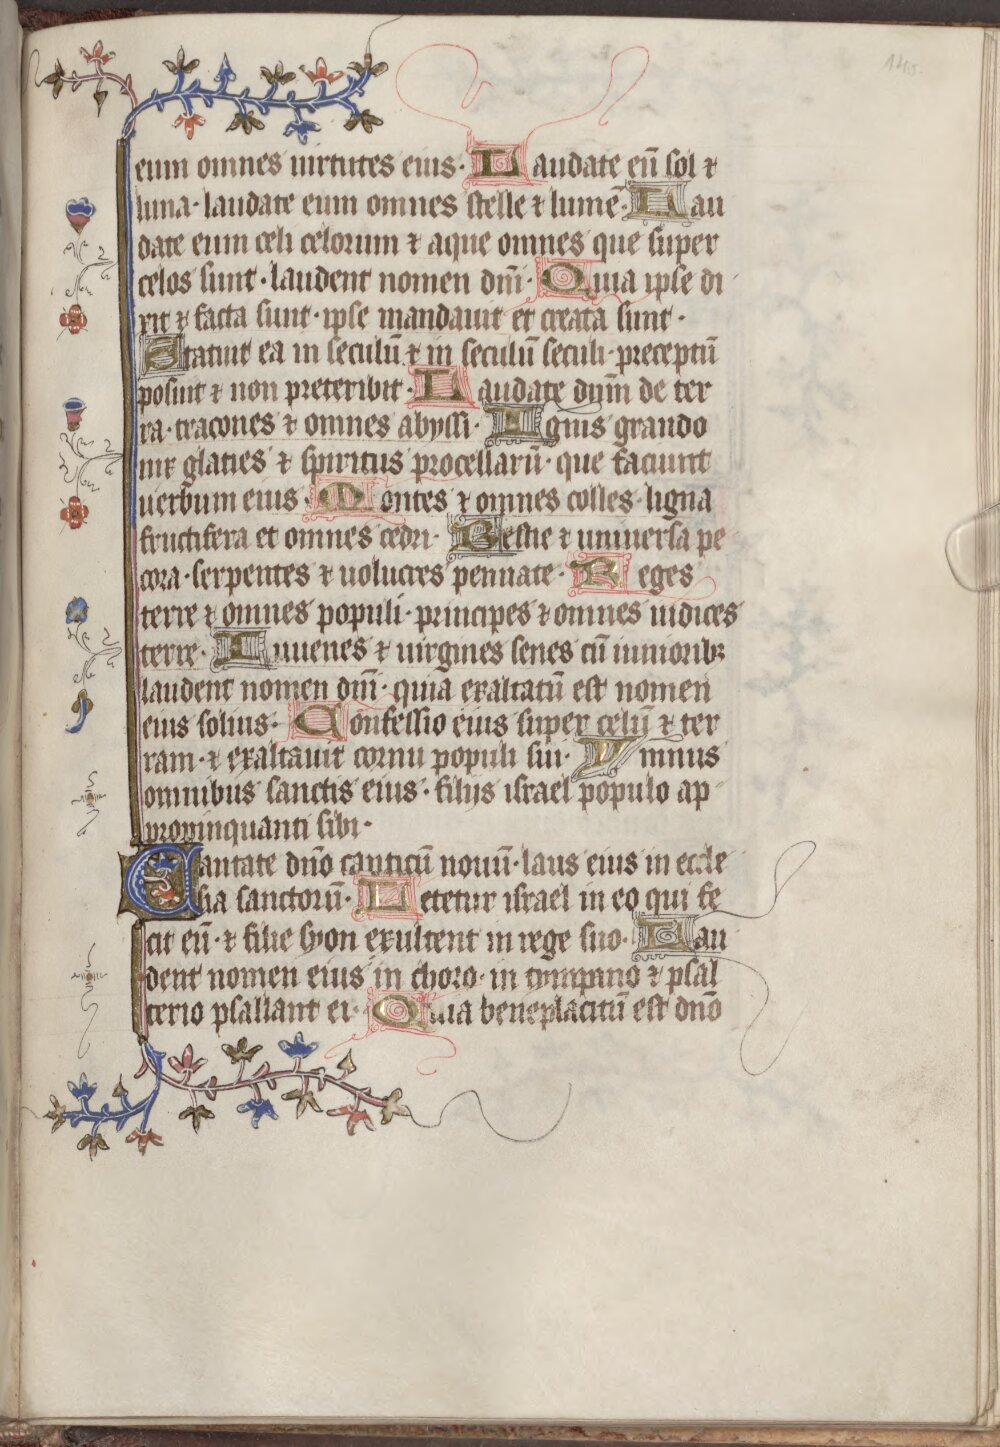 145.
eum omnes uirtutes eius· Laudate eū sol ⁊
luna· laudate eum omnes stelle ⁊ lumē· Lau
date eum celi celorum ⁊ aque omnes que super
celos sunt· laudent nomen dn̄i· Quia ipse di
xit ⁊ facta sunt· ipse mandauit et creata sunt·
Statuit ea in seculū ⁊ in seculū seculi· preceptū
posuit ⁊ non preteribit· Laudate dn̄m de ter
ra· tracones ⁊ omnes abyssi· Ignis grando
nix glaties ⁊ spiritus procellarū· que faciunt
uerbum eius· Montes ⁊ omnes colles· ligna
fructifera et omnes cedri· Bestie ⁊ uniuersa pe
cora· serpentes ⁊ uolucres pennate· Reges
terre ⁊ omnes populi· principes ⁊ omnes iudices
terre· Iuuenes ⁊ uirgines senes cū iunioribꝫ
laudent nomen dn̄i· quia exaltatū est nomen
eius solius· Confessio eius super celū ⁊ ter
ram· ⁊ exaltauit cornu populi sui· Ymnus
omnibus sanctis eius· filijs israel populo ap
propinquanti sibi·
Cantate dn̄o canticū nouū· laus eius in eccle
sia sanctorū· Letetur israel in eo qui fe
cit eū· ⁊ filie syon exultent in rege suo· Lau
dent nomen eius in choro· in tympano ⁊ psal
terio psallant ei· Quia beneplacitū est dn̄o